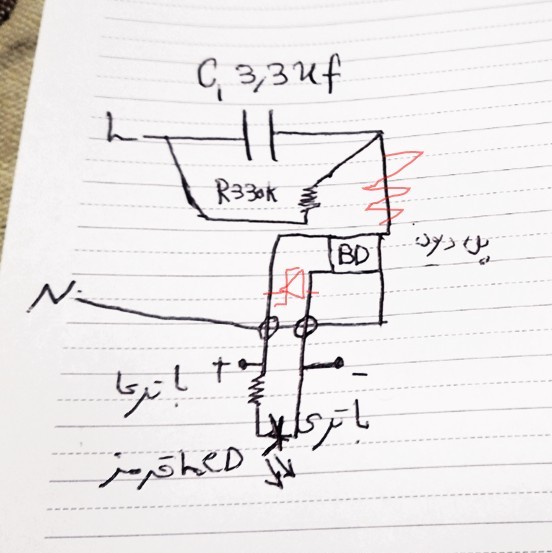 C1 3,3uf
L
R330K
BD
پل دیود
N
+
-
باتری
باتری
LED قرمز